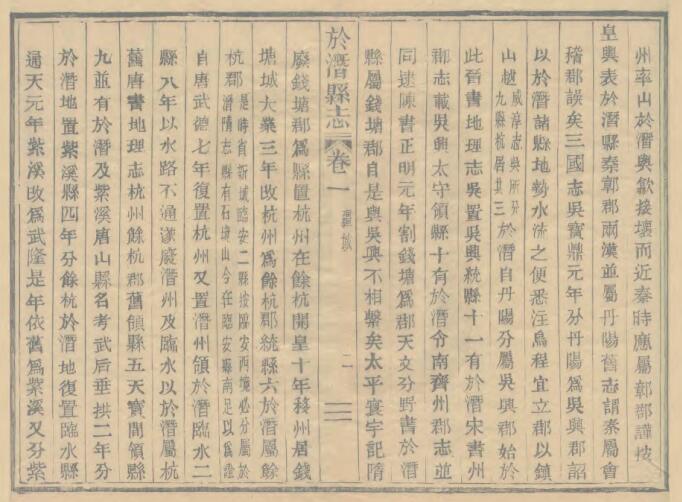 州率山於潛與歙接壤而近秦時應屬鄣郡謹按
皇輿表於潛縣秦鄣郡兩漢並屬丹陽舊志謂秦屬會
稽郡誤矣三國志吳寶鼎元年分丹陽為吳興郡詔
以於潛諸縣地勢水流之便悉注烏程宜立郡以鎮
山越咸淳志吳所分九縣杭居其三於潛自丹陽分屬吳興郡始於
此晉書地理志吳置吳興統縣十一有於潛宋書州
郡志載吳興太守領縣十有於潛令南齊州郡志並
同逮陳書正明元年割錢塘為郡天文分野書於潛
縣屬錢塘郡自是與吳興不相繫矣太平寰宇記隋
於潛縣志 卷一 疆域 二
廢錢塘郡為縣置杭州在餘杭開皇十年移州居錢
塘城大業三年改杭州為餘杭郡統縣六於潛屬餘
杭郡是時省新城臨安二縣按臨安西境必分屬於潛隋志縣有石境山今在臨安縣南足以為證
自唐武德七年復置杭州又置潛州領於潛臨水二
縣八年以水路不通遂廢潛州及臨水以於潛屬杭
舊唐書地理志杭州餘杭郡舊領縣五天寶間領縣
九並有於潛及紫溪唐山縣名考武后垂拱二年分
於潛地置紫溪縣四年分餘杭於潛地復置臨水縣
通天元年紫溪改為武隆是年依舊為紫溪又分紫